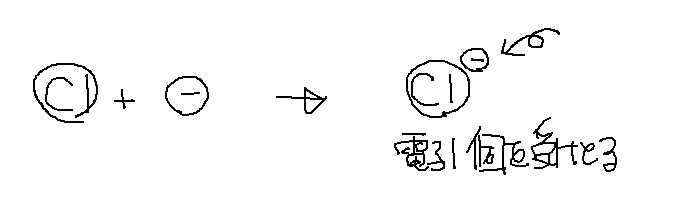 Cl + ⊖ → Cl⊖
電子1個を受けとる